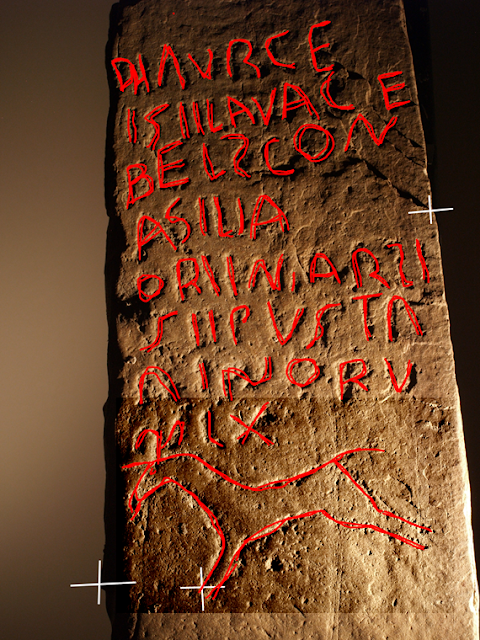 DHAVRCE
ISIILAVACE
BELSCON
ASILIA
ORIINIARSI
SIIPVSTA
AINORV
MLX